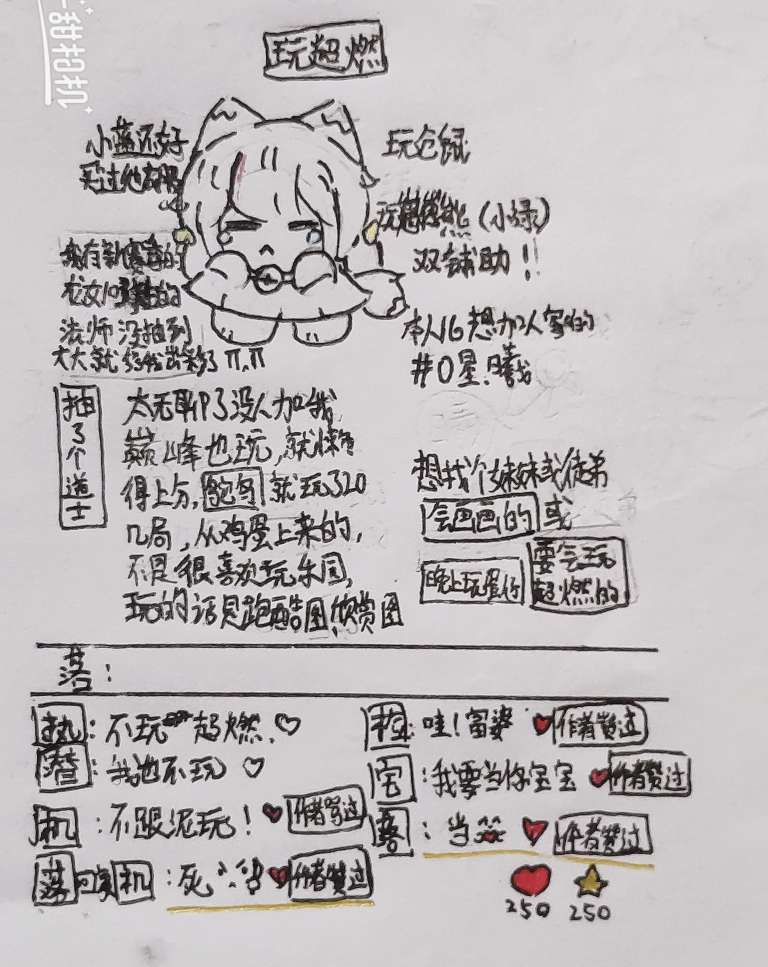 甜相机
玩超燃
小蓝还好
买过他衣服
我有新赛季的
龙女
法师没抽到
大大就给我出彩了π.π
玩仓鼠
(小绿)
双辅助!!
本人16想加人家的
#0星.曦
抽了个道士
太无聊了没人加我
巅峰也玩,就
得上分, 就玩了320
几局,从鸡蛋上来的,
不是很喜欢玩乐园,
玩的话是跑酷图,欣赏图
想找个妹妹或徒弟
会画画的 或
晚上玩蛋仔 要会玩超燃的
落:
执:不玩 超燃.♡
潜:我也不玩♡
机:不跟泥玩!❤作者赞过
落回复机:死 ❤作者赞过
:哇!富婆❤作者赞过
宅:我要当你宝宝❤作者赞过
落:当 ❤作者赞过
250 250